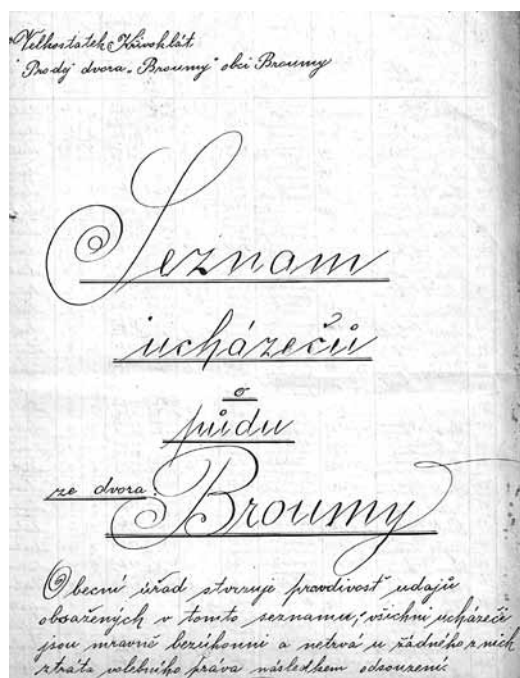 Velkostatek Křivoklát
Prodej dvora „Broumy" obci Broumy
Seznam
ucházečů
o
půdu
ze dvora:
Broumy
Obecní úřad stvrzuje pravdivosť udajů
obsažených v tomto seznamu; všichni ucházeči
jsou mravně bezúhonni a netrvá u žádného z nich
ztráta volebního práva následkem odsouzení.